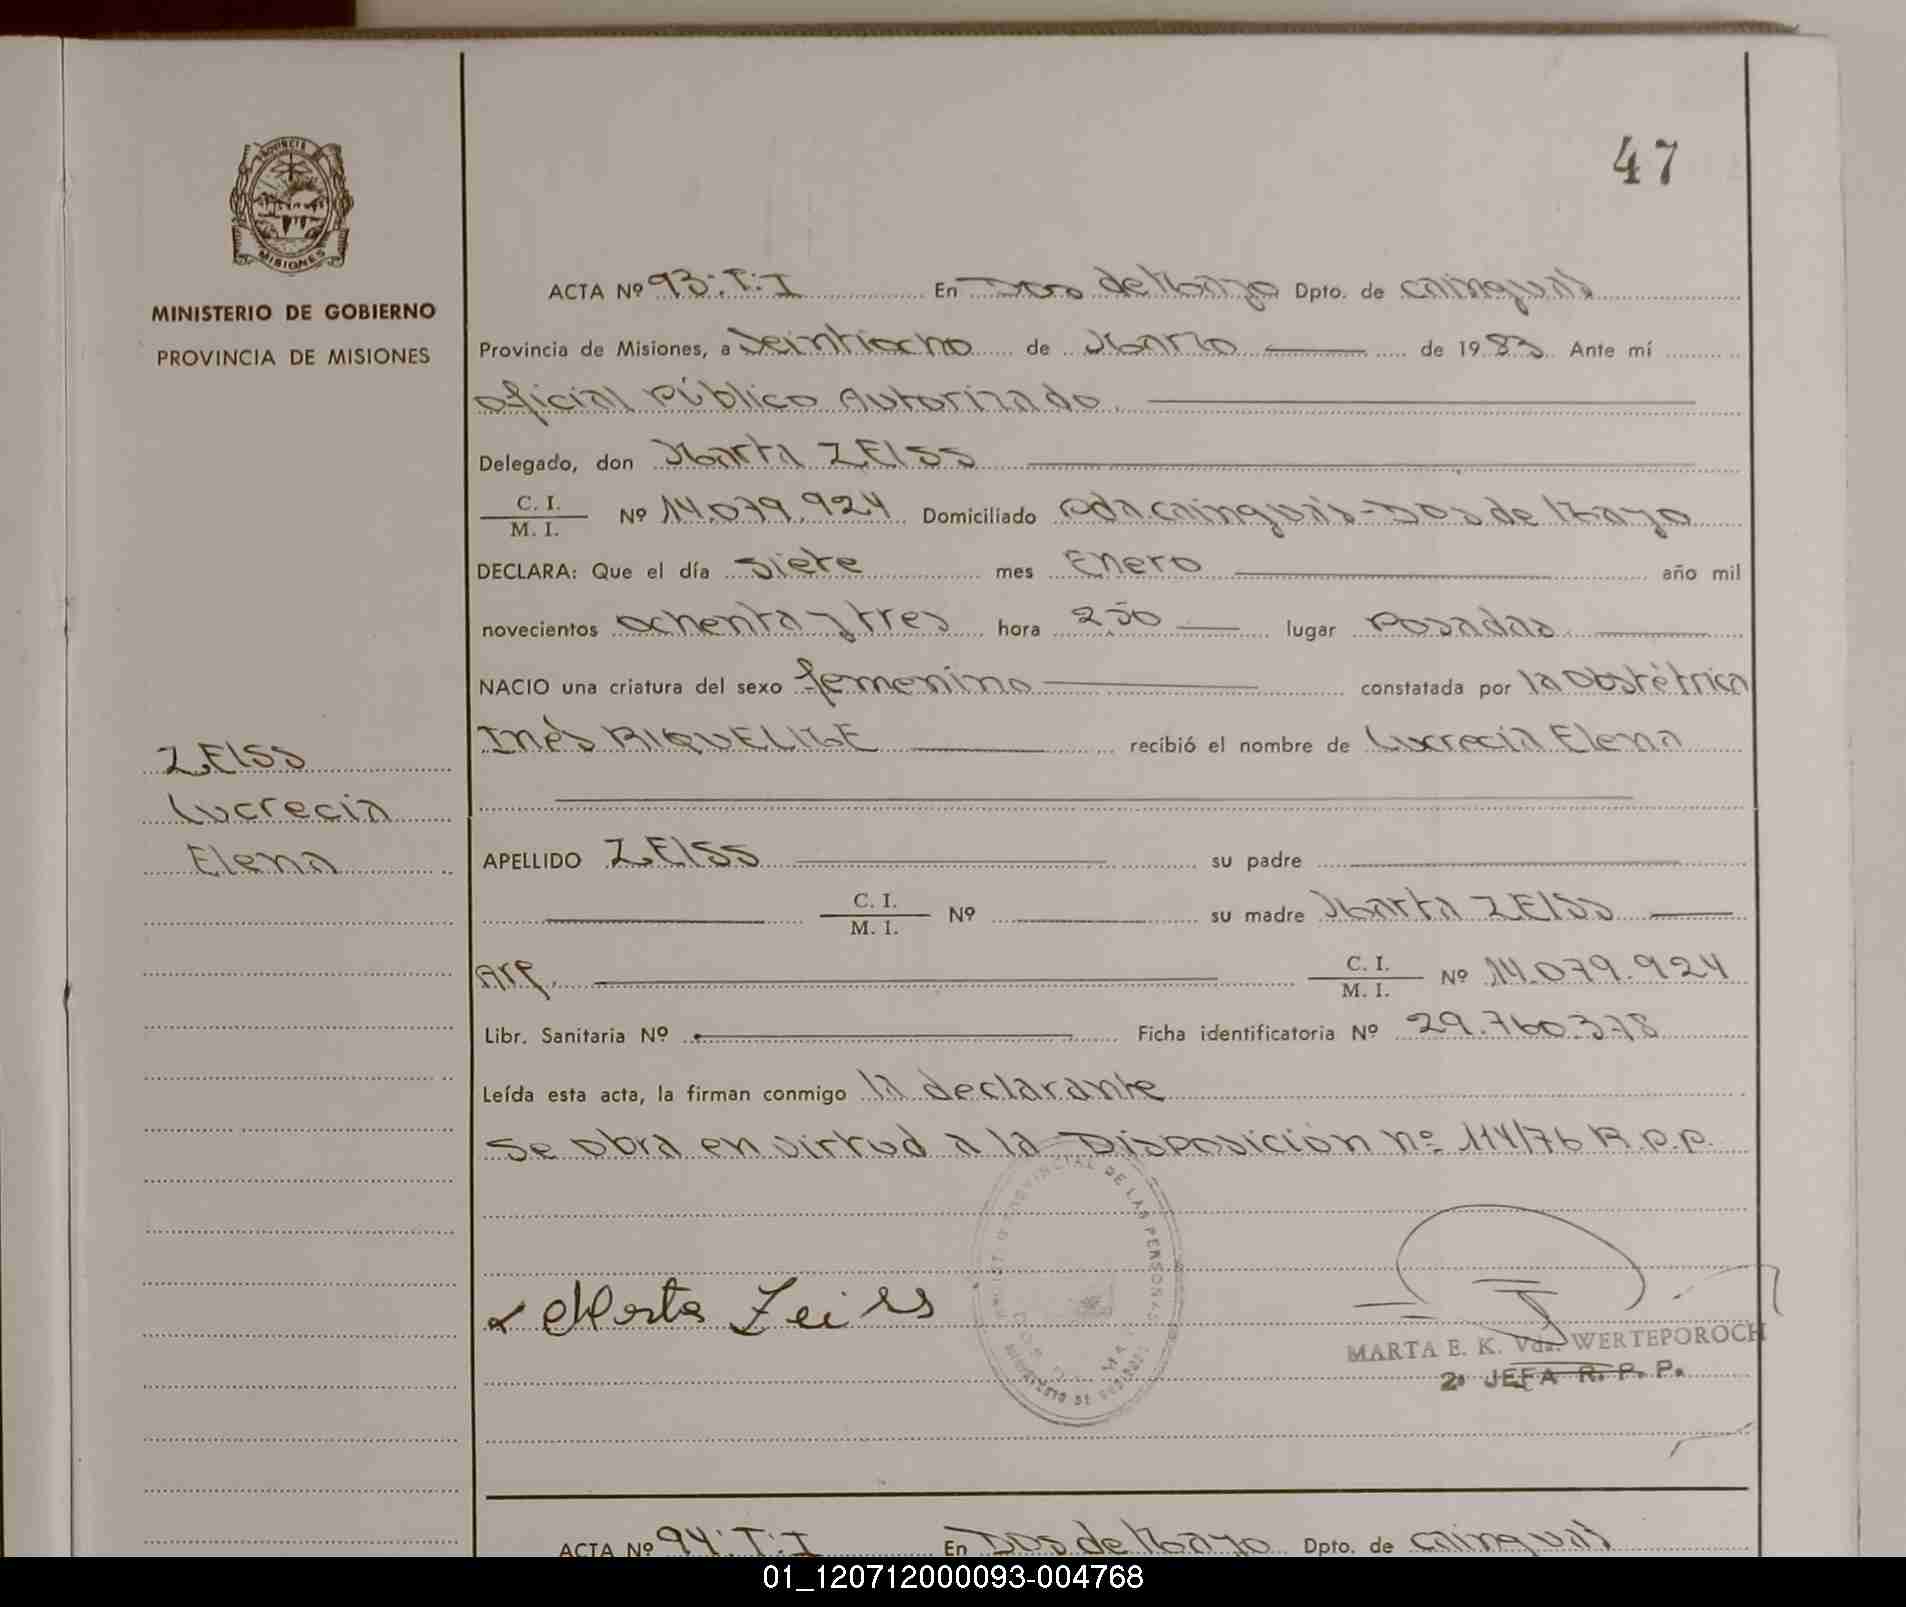 47
PROVINCIA
MISIONES
MINISTERIO DE GOBIERNO
PROVINCIA DE MISIONES
ACTA Nº 93. T. I En Dos de Mayo Dpto. de Cainguás
Provincia de Misiones, a Veintiocho de Marzo de 1983 Ante mí
Oficial Público Autorizado
Delegado, don Marta ZEISS
C. I.
M. I. Nº 14.079.924 Domiciliado Pda Cainguás - Dos de Mayo
DECLARA: Que el día siete mes Enero año mil
novecientos ochenta y tres hora 250 lugar Posadas
NACIO una criatura del sexo femenino constatada por la Obstétrica
Inés RIQUELME recibió el nombre de Lucrecia Elena
ZEISS
Lucrecia
Elena
APELLIDO ZEISS su padre
C. I.
M. I. Nº su madre Marta ZEISS
Arg. C. I.
M. I. Nº 14.079.924
Libr. Sanitaria Nº Ficha identificatoria Nº 29.760.378
Leída esta acta, la firman conmigo la declarante
Se obra en virtud a la Disposición nº 114/76 R.P.P.
PROVINCIAL DE LAS PERSONAS
Marta Zeiss
MARTA E. K. Vda. WERTEPOROCH
2ª JEFA R. P. P.
ACTA Nº 94. T. I En Dos de Mayo Dpto. de Cainguás
01_120712000093-004768